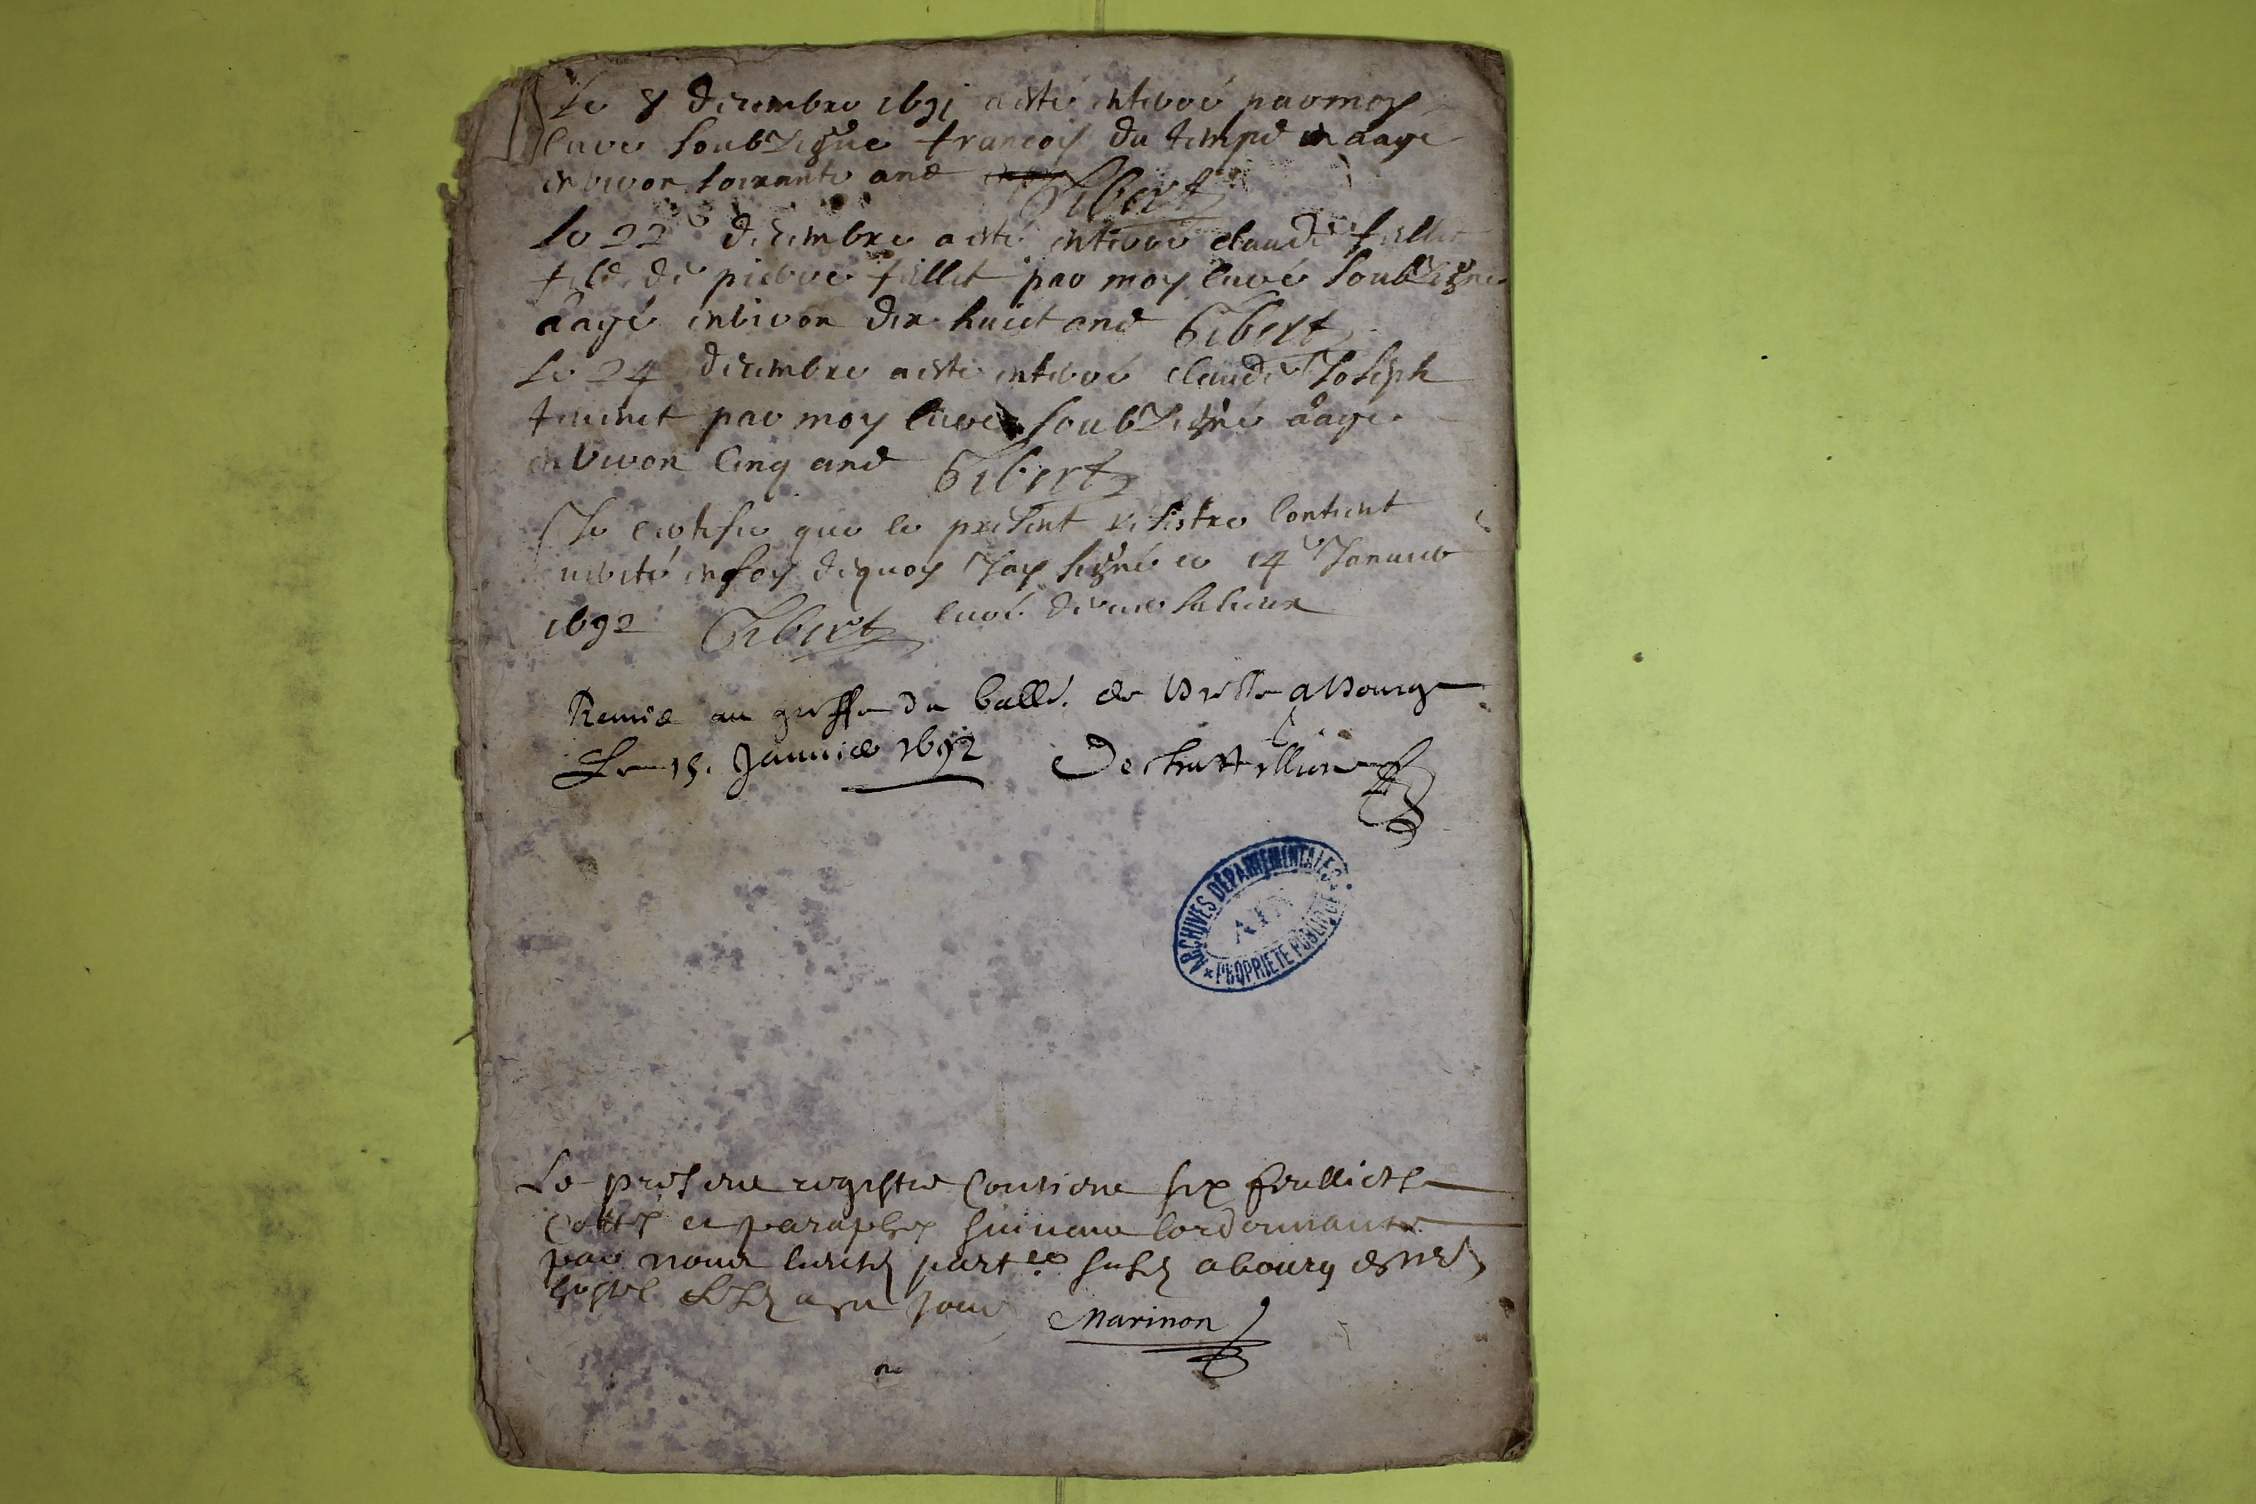 Le 8 decembre 1691 a esté enterré par moy
curé soubzsigné francois du temps aagé
environ soixante ans Gibert
Le 22e decembre a esté enterré claude fillet
fils de pierre fillet par moy curé soubzsigné
aagé environ dix huict ans Gibert
Le 24 decembre a esté enterré claude Joseph
par moy curé soubzsigné aagé
environ cinq ans Gibert
Je certifie que le present resistre contient
verité en foy dequoy Jay signé ce 14e Janvier
1692 Gibert curé
Remis au greffe du balle. de Bresse a Bourg
Le 15. Janvier 1692 De
ARCHIVES DEPARTEMENTALES
AIN
* PROPRIETE PUBLIQUE *
Le present registre contient six feulliets
cottés et paraphes suivant lordonnance
par nous a bourg
jour Marinon